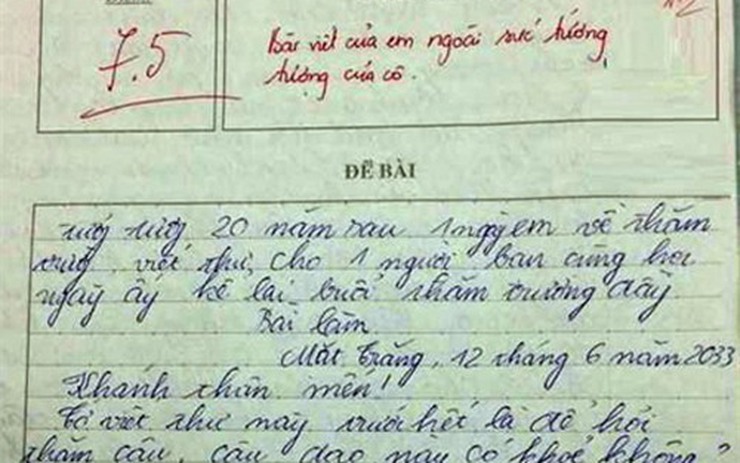 7.5
Bài viết của em ngoài sức tưởng
tượng của cô.
ĐỀ BÀI
20 năm sau 1 ngày em về thăm
viết thư cho 1 người bạn cùng học
ngày ấy kể lại buổi thăm trường đầy
Bài làm
Mặt Trăng, 12 tháng 6 năm 2033
Khánh thân mến!
Tớ viết thư này trước hết là để hỏi
thăm cậu, cậu dạo này có khoẻ không?